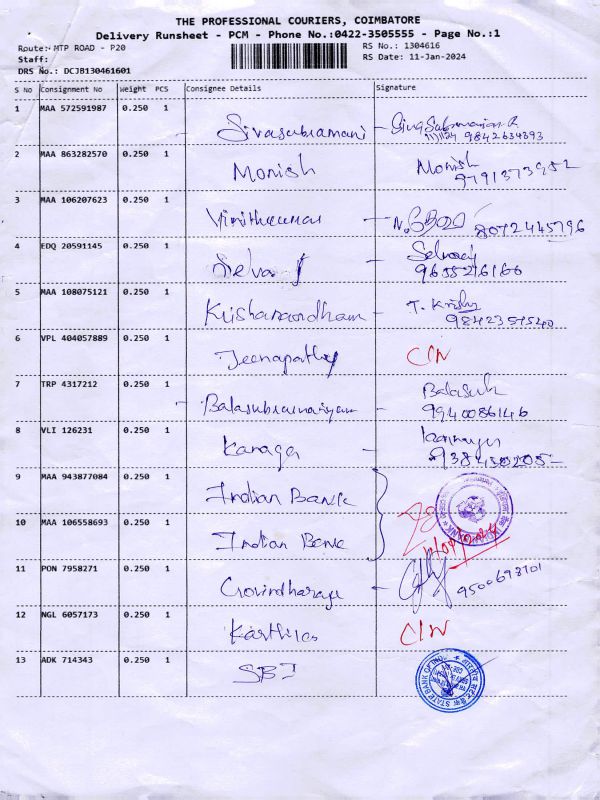 THE PROFESSIONAL COURIERS, COIMBATORE
Delivery Runsheet - PCM - Phone No.:0422-3505555 - Page No.:1
Route: MTP ROAD - P20
RS No.: 1304616
Staff:
RS Date: 11-Jan-2024
DRS No.: DCJB130461601
S No Consignment No Weight PCS Consignee Details Signature
1 MAA 572591987 0.250 1 Sivasubramani 9842634893
11/1/24
2 MAA 863282570 0.250 1 Monish Monish
3 MAA 106207623 0.250 1 8072445796
4 EDQ 20591145 0.250 1 Selva Selvaraj
9655216166
5 MAA 108075121 0.250 1 T. Krish
6 VPL 404057889 0.250 1 Jeenapathy C/N
7 TRP 4317212 0.250 1 Balasub
9940086146
8 VLI 126231 0.250 1 Kanaga
9 MAA 943877084 0.250 1 Indian Bank
10 MAA 106558693 0.250 1 Indian Bank
11 PON 7958271 0.250 1 Govindharaju
12 NGL 6057173 0.250 1 Karthik C/N
13 ADK 714343 0.250 1 SBI STATE BANK OF INDIA